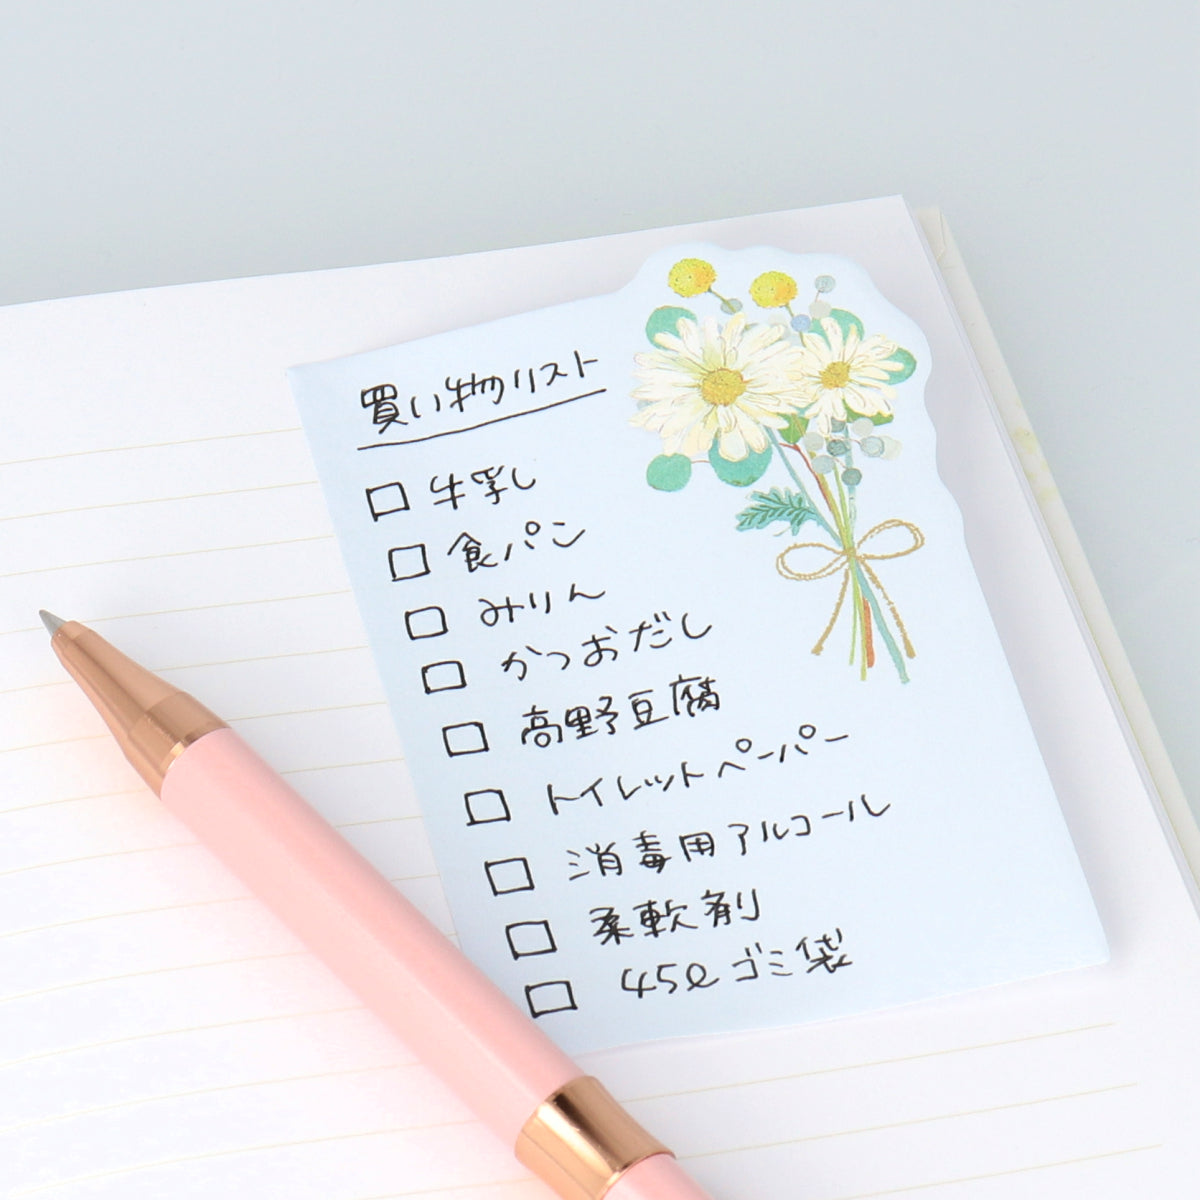 買い物リスト
□ 牛乳
□ 食パン
□ みりん
□ かつおだし
□ 高野豆腐
□ トイレットペーパー
□ 消毒用アルコール
□ 柔軟剤
□ 45ℓ ゴミ袋